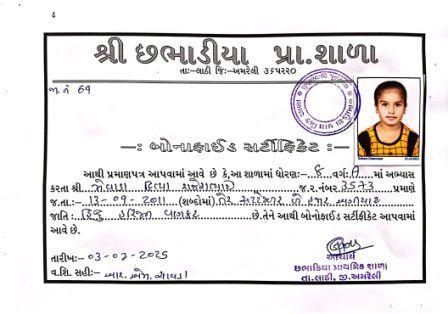 4
શ્રી છભાડીયા પ્રા.શાળા
તાઃ-લાઠી જિઃ-અમરેલી ૩૬૫૨૨૦
જા. નં 69
—ઃ બોનાફાઈડ સર્ટીફિકેટ ઃ—
આથી પ્રમાણપત્ર આપવામાં આવે છે કે,આ શાળામાં ધોરણઃ- 8 વર્ગઃ A માં અભ્યાસ
કરતા શ્રી દિવ્યા જ.ર.નંબર 3573 પ્રમાણે
જ.તા.ઃ- 13-09-2011 (શબ્દોમાં) તેર સપ્ટેમ્બર બે હજાર અગીયાર
જાતિ : હિન્દુ વણકર છે.તેને આથી બોનોફાઈડ સર્ટીફીકેટ આપવામાં
આવે છે.
તારીખઃ- 03-07-2025
વ.શિ. સહીઃ- આર. એમ. ચાવડા
આચાર્ય
છભાડિયા પ્રાથમિક શાળા
તા.લાઠી, જી.અમરેલી